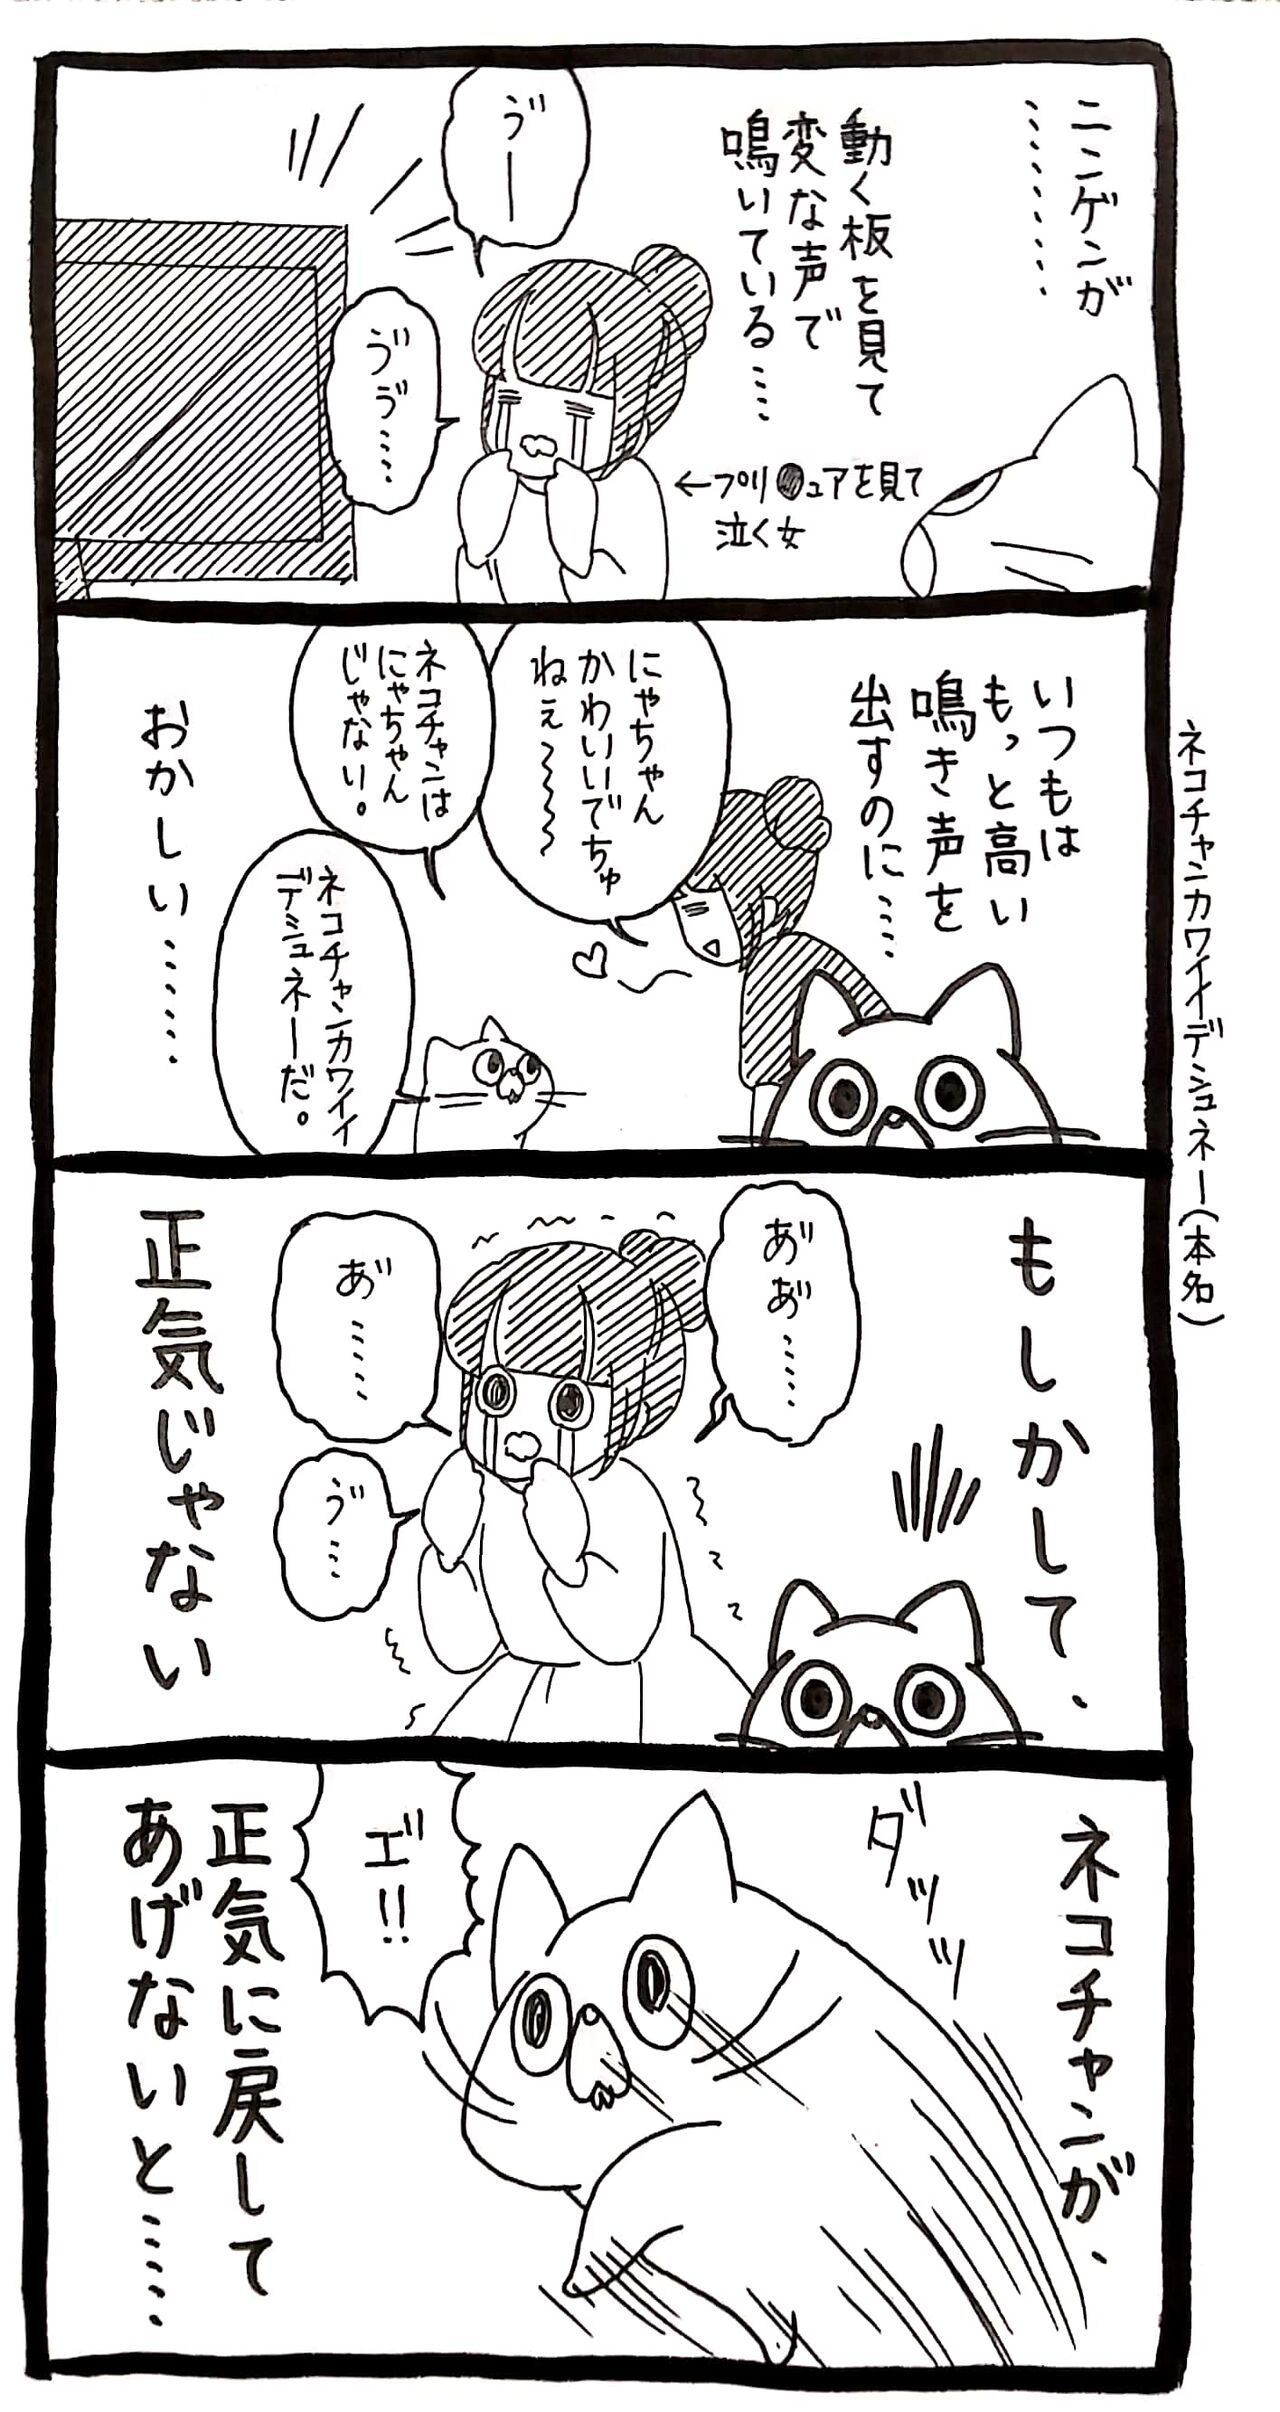 ニンゲンが
…………
動く板を見て
変な声で
鳴いている……
ゔー
ゔゔ……
←プリ●ュアを見て
泣く女
いつもは
もっと高い
鳴き声を
出すのに……
にゃちゃん
かわいいでちゅ
ねぇ〜〜〜
ネコチャンは
にゃちゃん
じゃない。
ネコチャンカワイイ
デシュネーだ。
おかしい……
ネコチャンカワイイデシュネー(本名)
もしかして、
あ゙あ゙……
あ゙……
ゔ……
正気じゃない
ネコチャンが、
ダッッッ
エ゙!!
正気に戻して
あげないと……